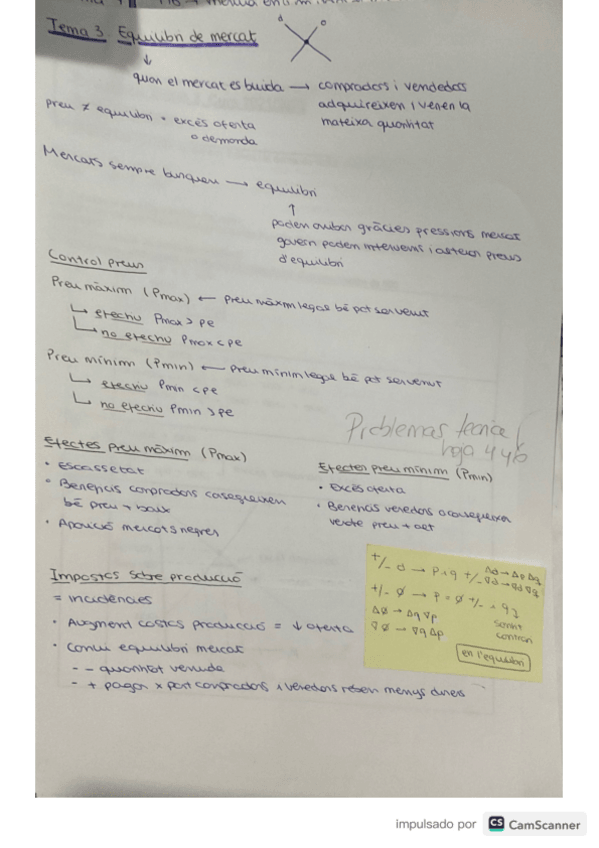 Tema 3 Equilibri de mercat
d o
quan el mercat es buida → compradors i venedors
adquireixen i venen la
mateixa quantitat
preu ≠ equilibri = excés oferta
o demanda
Mercats sempre busquen → equilibri
poden arribar gràcies pressions mercat
govern poden intervenir i alteren preus
d'equilibri
Control preus
Preu màxim (Pmax) ← preu màxim legal bé pot ser venut
↳ efectiu Pmax > pe
↳ no efectiu Pmax < pe
Preu mínim (Pmin) ← preu mínim legal bé pot ser venut
↳ efectiu Pmin < pe
↳ no efectiu Pmin > pe
Problemas
hoja 4 y 6
Efectes preu màxim (Pmax)
• Escassetat
• Beneficis compradors
bé preu + baix
• Aparició mercats negres
Efectes preu mínim (Pmin)
• Excés oferta
• Beneficis venedors
vendre preu + alt
Impostos sobre producció
= incidències
• Augment costos producció = ↓ oferta
• Canvi equilibri mercat
- - quantitat venuda
- + pagar x part compradors i venedors reben menys diners
+/- d → p + q +/- Δd → Δp Δq
∇d → ∇p ∇q
+/- Ø → p = Ø +/- + q
ΔØ → Δq ∇p
∇Ø → ∇q Δp
sentit
contrari
en l'equilibri
impulsado por CS CamScanner